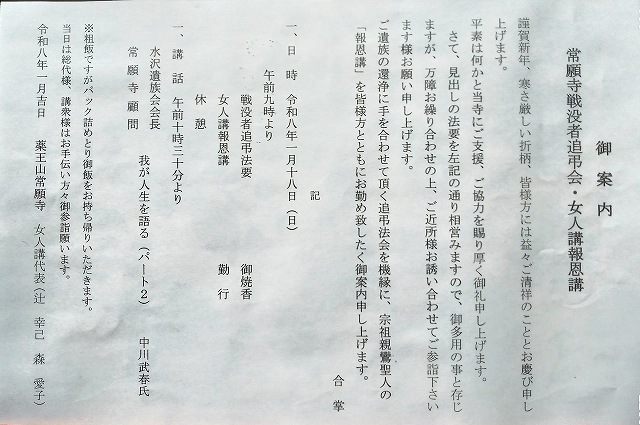 御案内
常願寺戦没者追弔会・女人講報恩講
謹賀新年、寒さ厳しい折柄、皆様方には益々ご清祥のこととお慶び申し
上げます。
平素は何かと当寺にご支援、ご協力を賜り厚く御礼申し上げます。
さて、見出しの法要を左記の通り相営みますので、御多用の事と存じ
ますが、万障お繰り合わせの上、ご近所様お誘い合わせてご参詣下さい
ます様お願い申し上げます。
ご遺族の還浄に手を合わせて頂く追弔法会を機縁に、宗祖親鸞聖人の
「報恩講」を皆様方とともにお勤め致したく御案内申し上げます。
合掌
記
一、日時 令和八年一月十八日（日）
午前九時より
戦没者追弔法要 御焼香
女人講報恩講 勤行
休憩
一、講話 午前十時三十分より
水沢遺族会会長
常願寺顧問 我が人生を語る（パート２） 中川武春氏
※粗飯ですがパック詰めとり御飯をお持ち帰りいただきます。
当日は総代様、講衆様はお手伝い方々御参詣願います。
令和八年一月吉日 薬王山常願寺 女人講代表（辻 幸己 森 愛子）